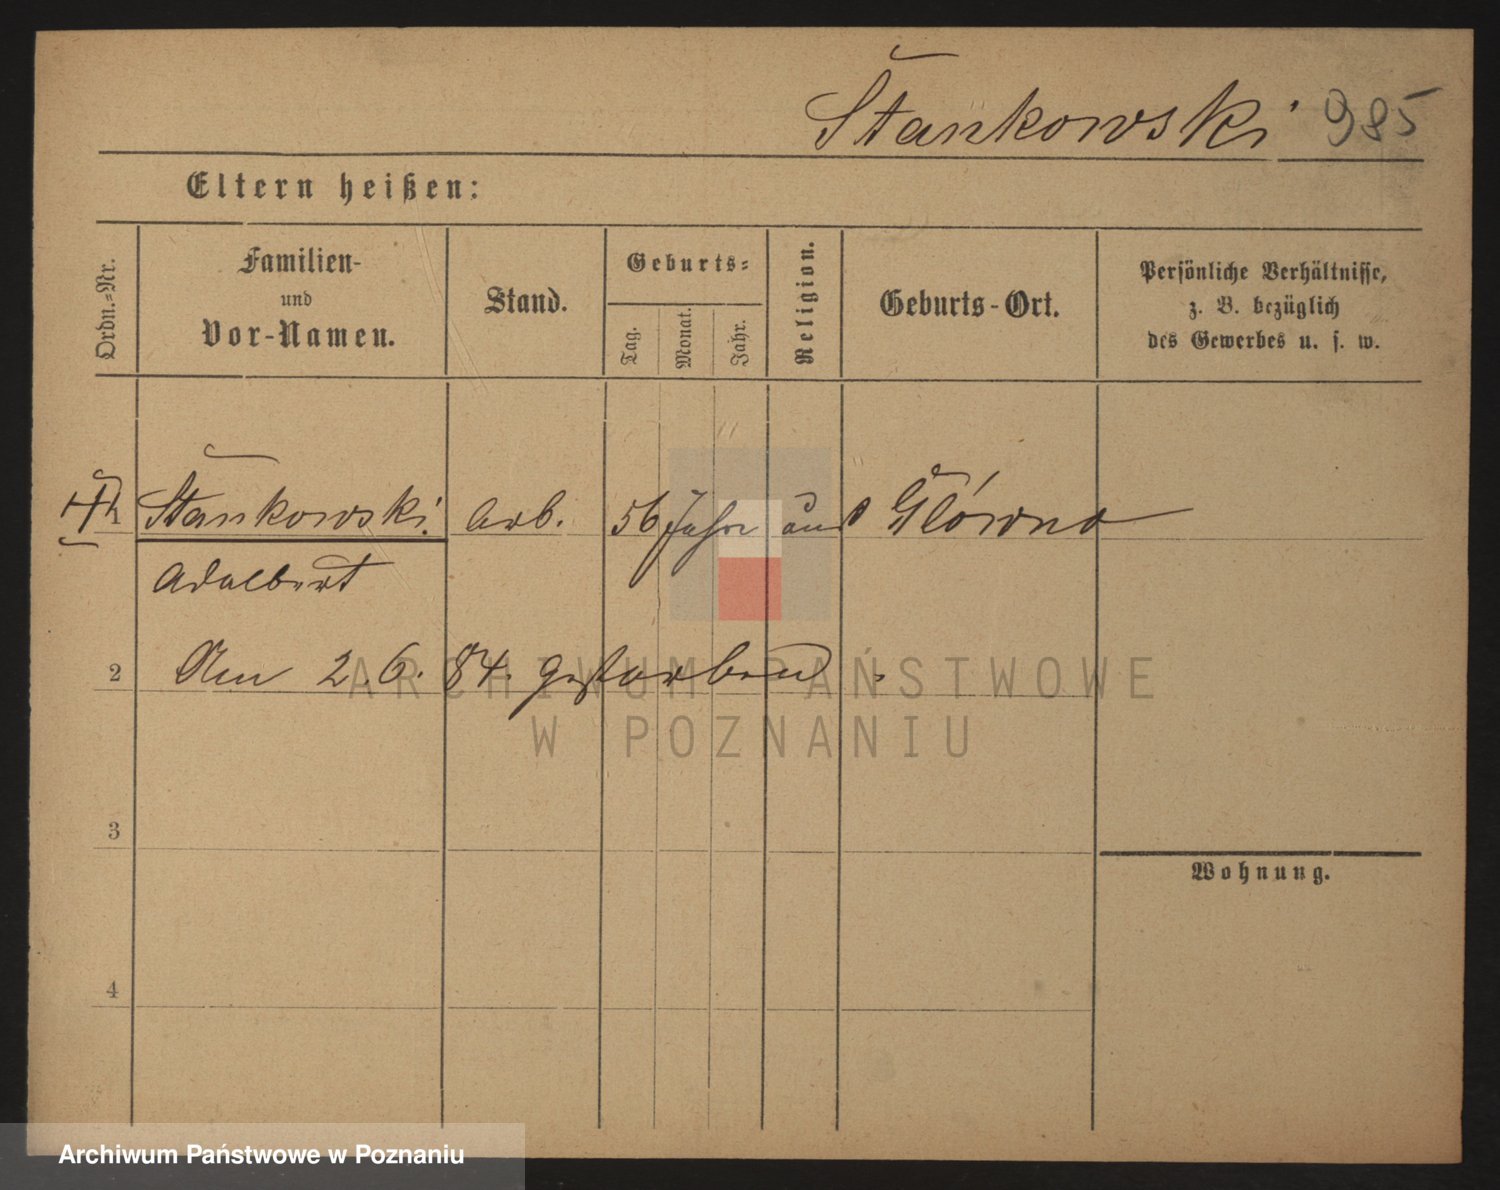 Stankowski 985
Eltern heißen:
Ordn.-Nr.
Familien-
und
Vor-Namen.
Stand.
Geburts-
Tag.
Monat.
Jahr.
Religion.
Geburts-Ort.
Persönliche Verhältnisse,
z. B. bezüglich
des Gewerbes u. s. w.
1 Stankowski Arb. 56 Jahr aus Główno
Adalbert
2 Am 2.6.84. gestorben.
ARCHIWUM PAŃSTWOWE
W POZNANIU
3
Wohnung.
4
Archiwum Państwowe w Poznaniu